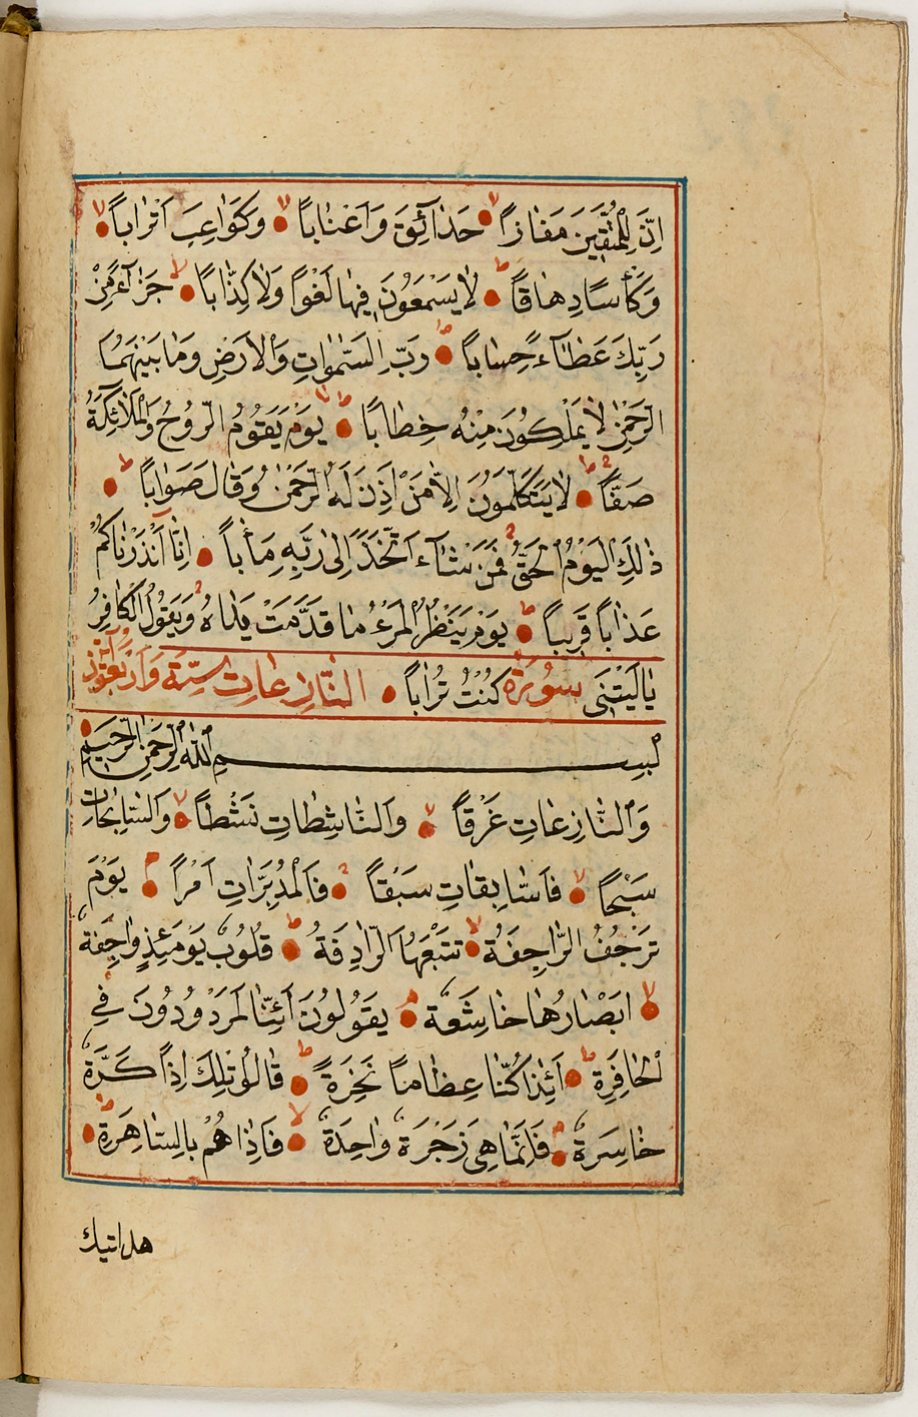 اِنَّ لِلْمُتَّقِينَ مَفَازاً حَدَائِٓقَ وَاَعْنَاباً وَكَوَاعِبَ اَتْرَاباً
وَكَأْساً دِهَاقاً لَا يَسْمَعُونَ فِيهَا لَغْواً وَلَا كِذَّاباً جَزَآءً مِنْ
رَبِّكَ عَطَآءً حِسَاباً رَبِّ السَّمٰوَاتِ وَالْاَرْضِ وَمَا بَيْنَهُمَا
الرَّحْمٰنِ لَا يَمْلِكُونَ مِنْهُ خِطَاباً يَوْمَ يَقُومُ الرُّوحُ وَالْمَلٰٓئِكَةُ
صَفّاً لَا يَتَكَلَّمُونَ اِلَّا مَنْ اَذِنَ لَهُ الرَّحْمٰنُ وَقَالَ صَوَاباً
ذٰلِكَ الْيَوْمُ الْحَقُّ فَمَنْ شَآءَ اتَّخَذَ اِلٰى رَبِّهِ مَاٰباً اِنَّٓا اَنْذَرْنَاكُمْ
عَذَاباً قَرِيباً يَوْمَ يَنْظُرُ الْمَرْءُ مَا قَدَّمَتْ يَدَاهُ وَيَقُولُ الْكَافِرُ
يَالَيْتَنِى كُنْتُ تُرَاباً سُورَةُ النَّازِعَاتِ سِتَّة وَاَرْبَعُونَ
بِسْمِ اللّٰهِ الرَّحْمٰنِ الرَّحِيمِ
وَالنَّازِعَاتِ غَرْقاً وَالنَّاشِطَاتِ نَشْطاً وَالسَّابِحَاتِ
سَبْحاً فَالسَّابِقَاتِ سَبْقاً فَالْمُدَبِّرَاتِ اَمْراً يَوْمَ
تَرْجُفُ الرَّاجِفَةُ تَتْبَعُهَا الرَّادِفَةُ قُلُوبٌ يَوْمَئِذٍ وَاجِفَةٌ
اَبْصَارُهَا خَاشِعَةٌ يَقُولُونَ اَئِنَّا لَمَرْدُودُونَ فِي
الْحَافِرَةِ اَئِذَا كُنَّا عِظَاماً نَخِرَةً قَالُوا تِلْكَ اِذاً كَرَّةٌ
خَاسِرَةٌ فَاِنَّمَا هِيَ زَجْرَةٌ وَاحِدَةٌ فَاِذَا هُمْ بِالسَّاهِرَةِ
هل اتيك